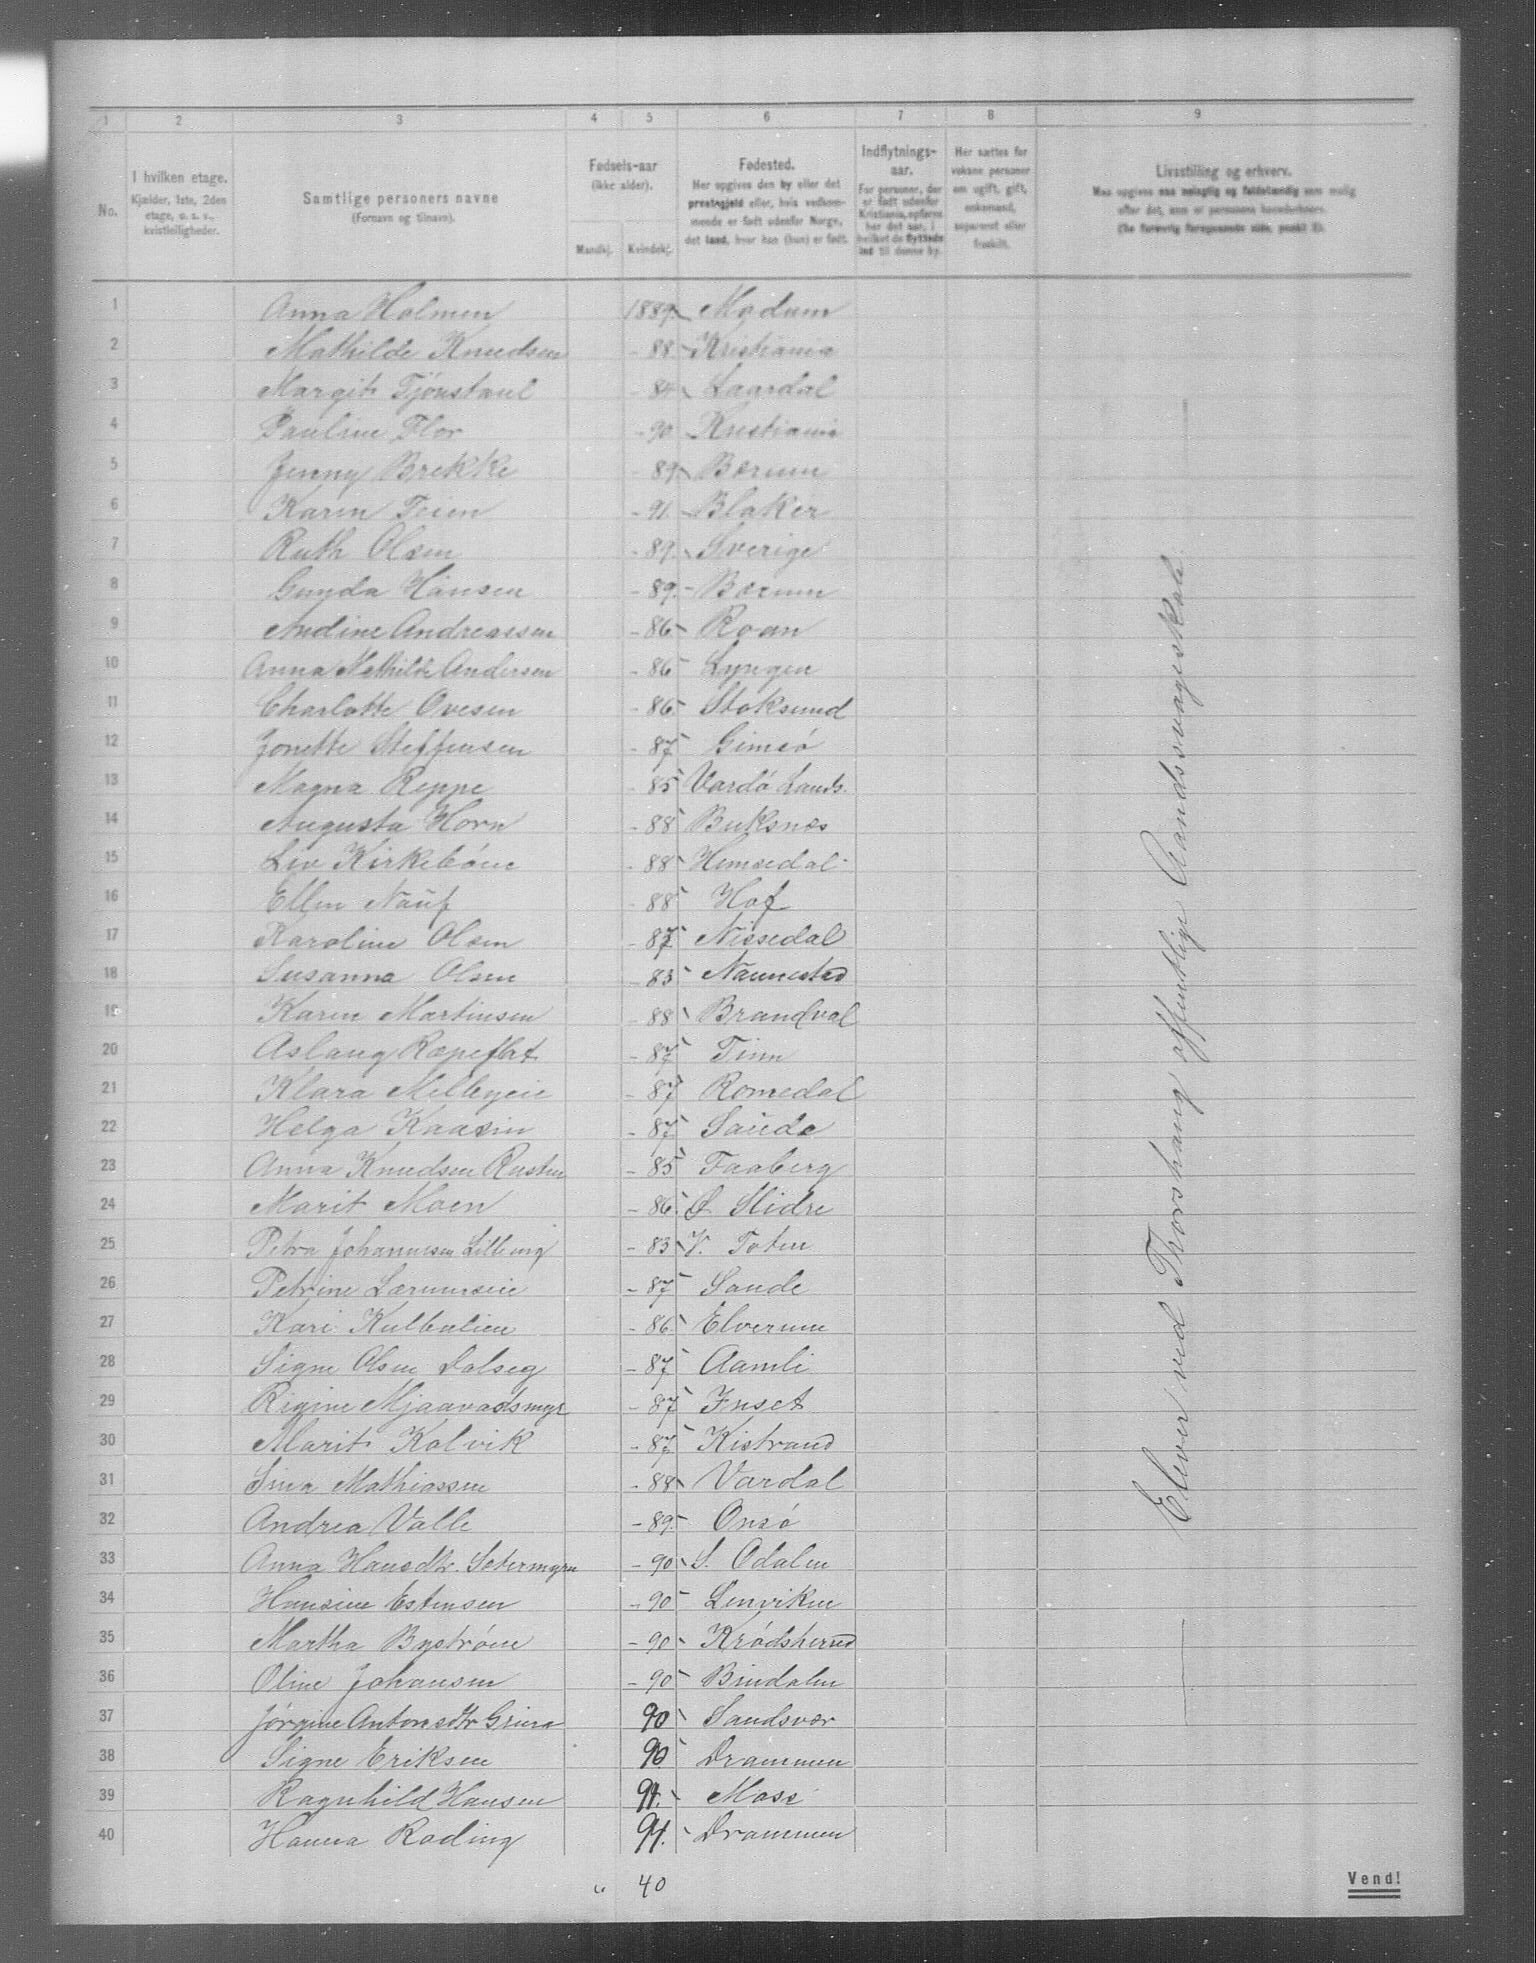 1 2 3 4 5 6 7 8 9
No.
I hvilken etage.
Kjælder, 1ste, 2den
etage, o. s. v.,
kvistleiligheder.
Samtlige personers navne
(Fornavn og tilnavn).
Fødsels-aar
(ikke alder).
Mandkj. Kvindekj.
Fødested.
Her opgives den by eller det
prestegjeld eller, hvis vedkom-
mende er født udenfor Norge,
det land, hvor han (hun) er født.
Indflytnings-
aar.
For personer, der
er født udenfor
Kristiania, opføres
her det aar, i
hvilket de flyttede
ind til denne by.
Her sættes for
voksne personer
om ugift, gift,
enkemand,
separeret eller
fraskilt.
Livsstilling og erhverv.
Maa opgives saa nøiagtig og fuldstændig som mulig
efter det, som er personens hovederhverv.
1 Anna Holmen 1889. Modum
2 Mathilde Knudsen - 88 Kristiania
3 Margit Tjönstaul - 84 Laardal
4 Pauline Flor - 90 Kristiania
5 Jenny Brekke - 89 Bærum
6 Karen Teien - 91. Blaker
7 Ruth Olsen - 89. Sverige
8 Gunda Hansen - 89. Bærum
9 Andine Andreassen - 86 Roan
10 Anna Mathilde Andersen - 86 Lyngen
11 Charlotte Ovesen - 86 Stoksund
12 Jonette Steffensen - 87 Gimsö
13 Magna Reppe - 85 Vardö Lands.
14 Augusta Horn - 88 Buksnæs
15 Liv Kirkeböen - 88 Hemsedal
16 Ellen Nauf - 88 Hof
17 Karoline Olsen - 87 Nissedal
18 Susanna Olsen - 83 Nannestad
19 Karen Martinsen - 88 Brandval
20 Aslaug Ræpeflat - 87 Tinn
21 Klara Mellbyeie - 87 Romedal
22 Helga Kaasin - 87 Saude
23 Anna Knudsen Rusten - 85 Faaberg
24 Marit Moen - 86. Ø. Slidre
25 Petra Johannesen Lilleeng - 83 V. Toten
26 Petrine Lærumseie - 87 Sande
27 Kari Kulbalien - 86. Elverum
28 Signe Olsen Dalseg - 87 Aamli
29 Rigine Mjaavadsmyr - 87 Inset
30 Marit Kolvik - 87 Kistrand
31 Sina Mathiassen - 88 Vardal
32 Andrea Valle - 89. Onsö
33 Anna Hansdtr. Setermyrn - 90 S. Odalen
34 Hansine Estensen - 90 Lenviken
35 Martha Byström - 90 Krödsherred
36 Oline Johansen - 90 Bindalen
37 Jörgine Antonsdtr Griura 90 Sandsvær
38 Signe Eriksen 90. Drammen
39 Ragnhild Hansen 91. Moss
40 Hanna Roding 91. Drammen
Elever ved Thorshaug offentlige Aandssvageskole
„ 40
Vend!